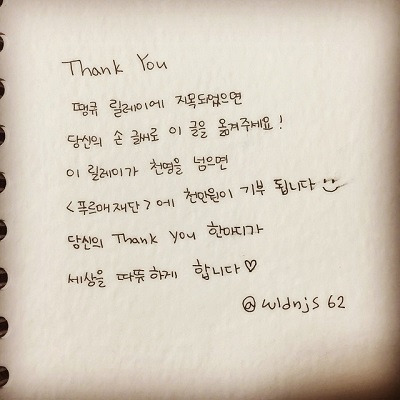 Thank You
땡큐 릴레이에 지목되었으면
당신의 손 글씨로 이 글을 옮겨주세요!
이 릴레이가 천명을 넘으면
<푸르메재단>에 천만원이 기부 됩니다
당신의 Thank You 한마디가
세상을 따뜻하게 합니다♡
@wldnjs 62